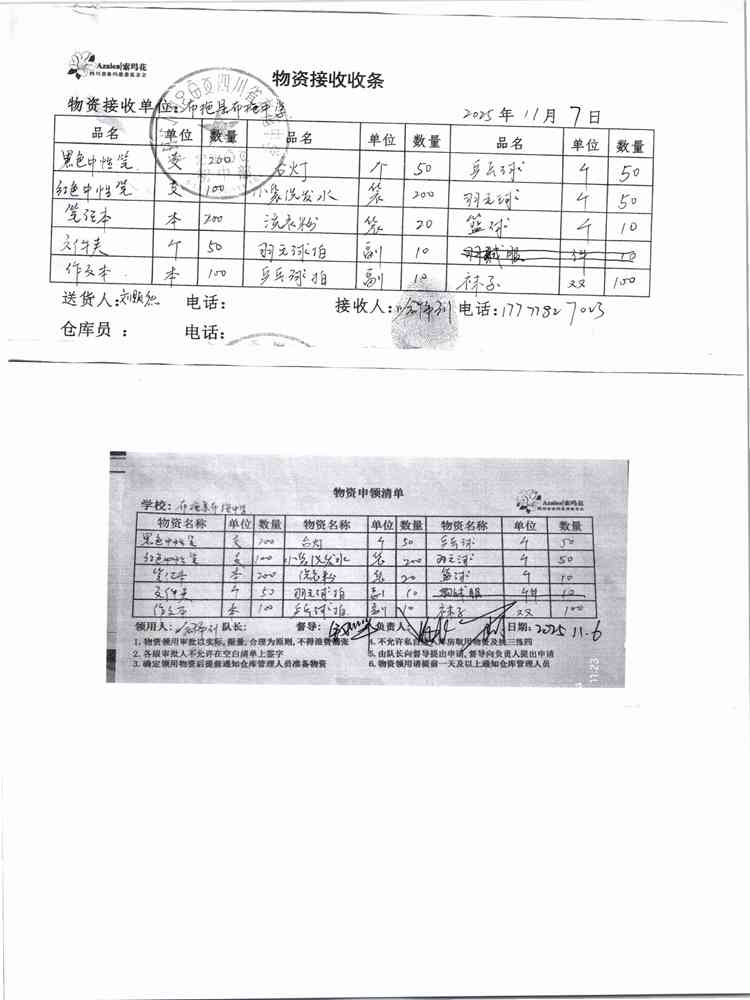 Azalea|索玛花
四川省索玛慈善基金会
物资接收收条
物资接收单位:布拖县布拖中学 2025年11月7日
品名 单位 数量 品名 单位 数量 品名 单位 数量
黑色中性笔 支 200 台灯 个 50 乒乓球 个 50
红色中性笔 支 100 小袋洗发水 袋 200 羽毛球 个 50
笔记本 本 200 洗衣粉 袋 20 篮球 个 10
文件夹 个 50 羽毛球拍 副 10 件 10
作文本 本 100 乒乓球拍 副 10 袜子 双 100
送货人: 电话: 接收人: 电话:17777827023
仓库员: 电话:
物资申领清单
学校:布拖县布拖中学 Azalea|索玛花
四川省索玛慈善基金会
物资名称 单位 数量 物资名称 单位 数量 物资名称 单位 数量
黑色中性笔 支 200 台灯 个 50 乒乓球 个 50
红色中性笔 支 100 小袋洗发水 袋 200 羽毛球 个 50
笔记本 本 200 洗衣粉 袋 20 篮球 个 10
文件夹 个 50 羽毛球拍 副 10 件 10
作文本 本 100 乒乓球拍 副 10 袜子 双 100
领用人: 队长: 督导: 负责人: 日期:2025.11.6
1.物资领用审批以实际,限量,合理为原则,不得浪费 4.不允许私自 库房取用物资及挑三拣四
2.各级审批人不允许在空白清单上签字 5.由队长向督导提出申请,督导向负责人提出申请
3.确定领用物资后提前通知仓库管理人员准备物资 6.物资领用请提前一天及以上通知仓库管理人员
11:23